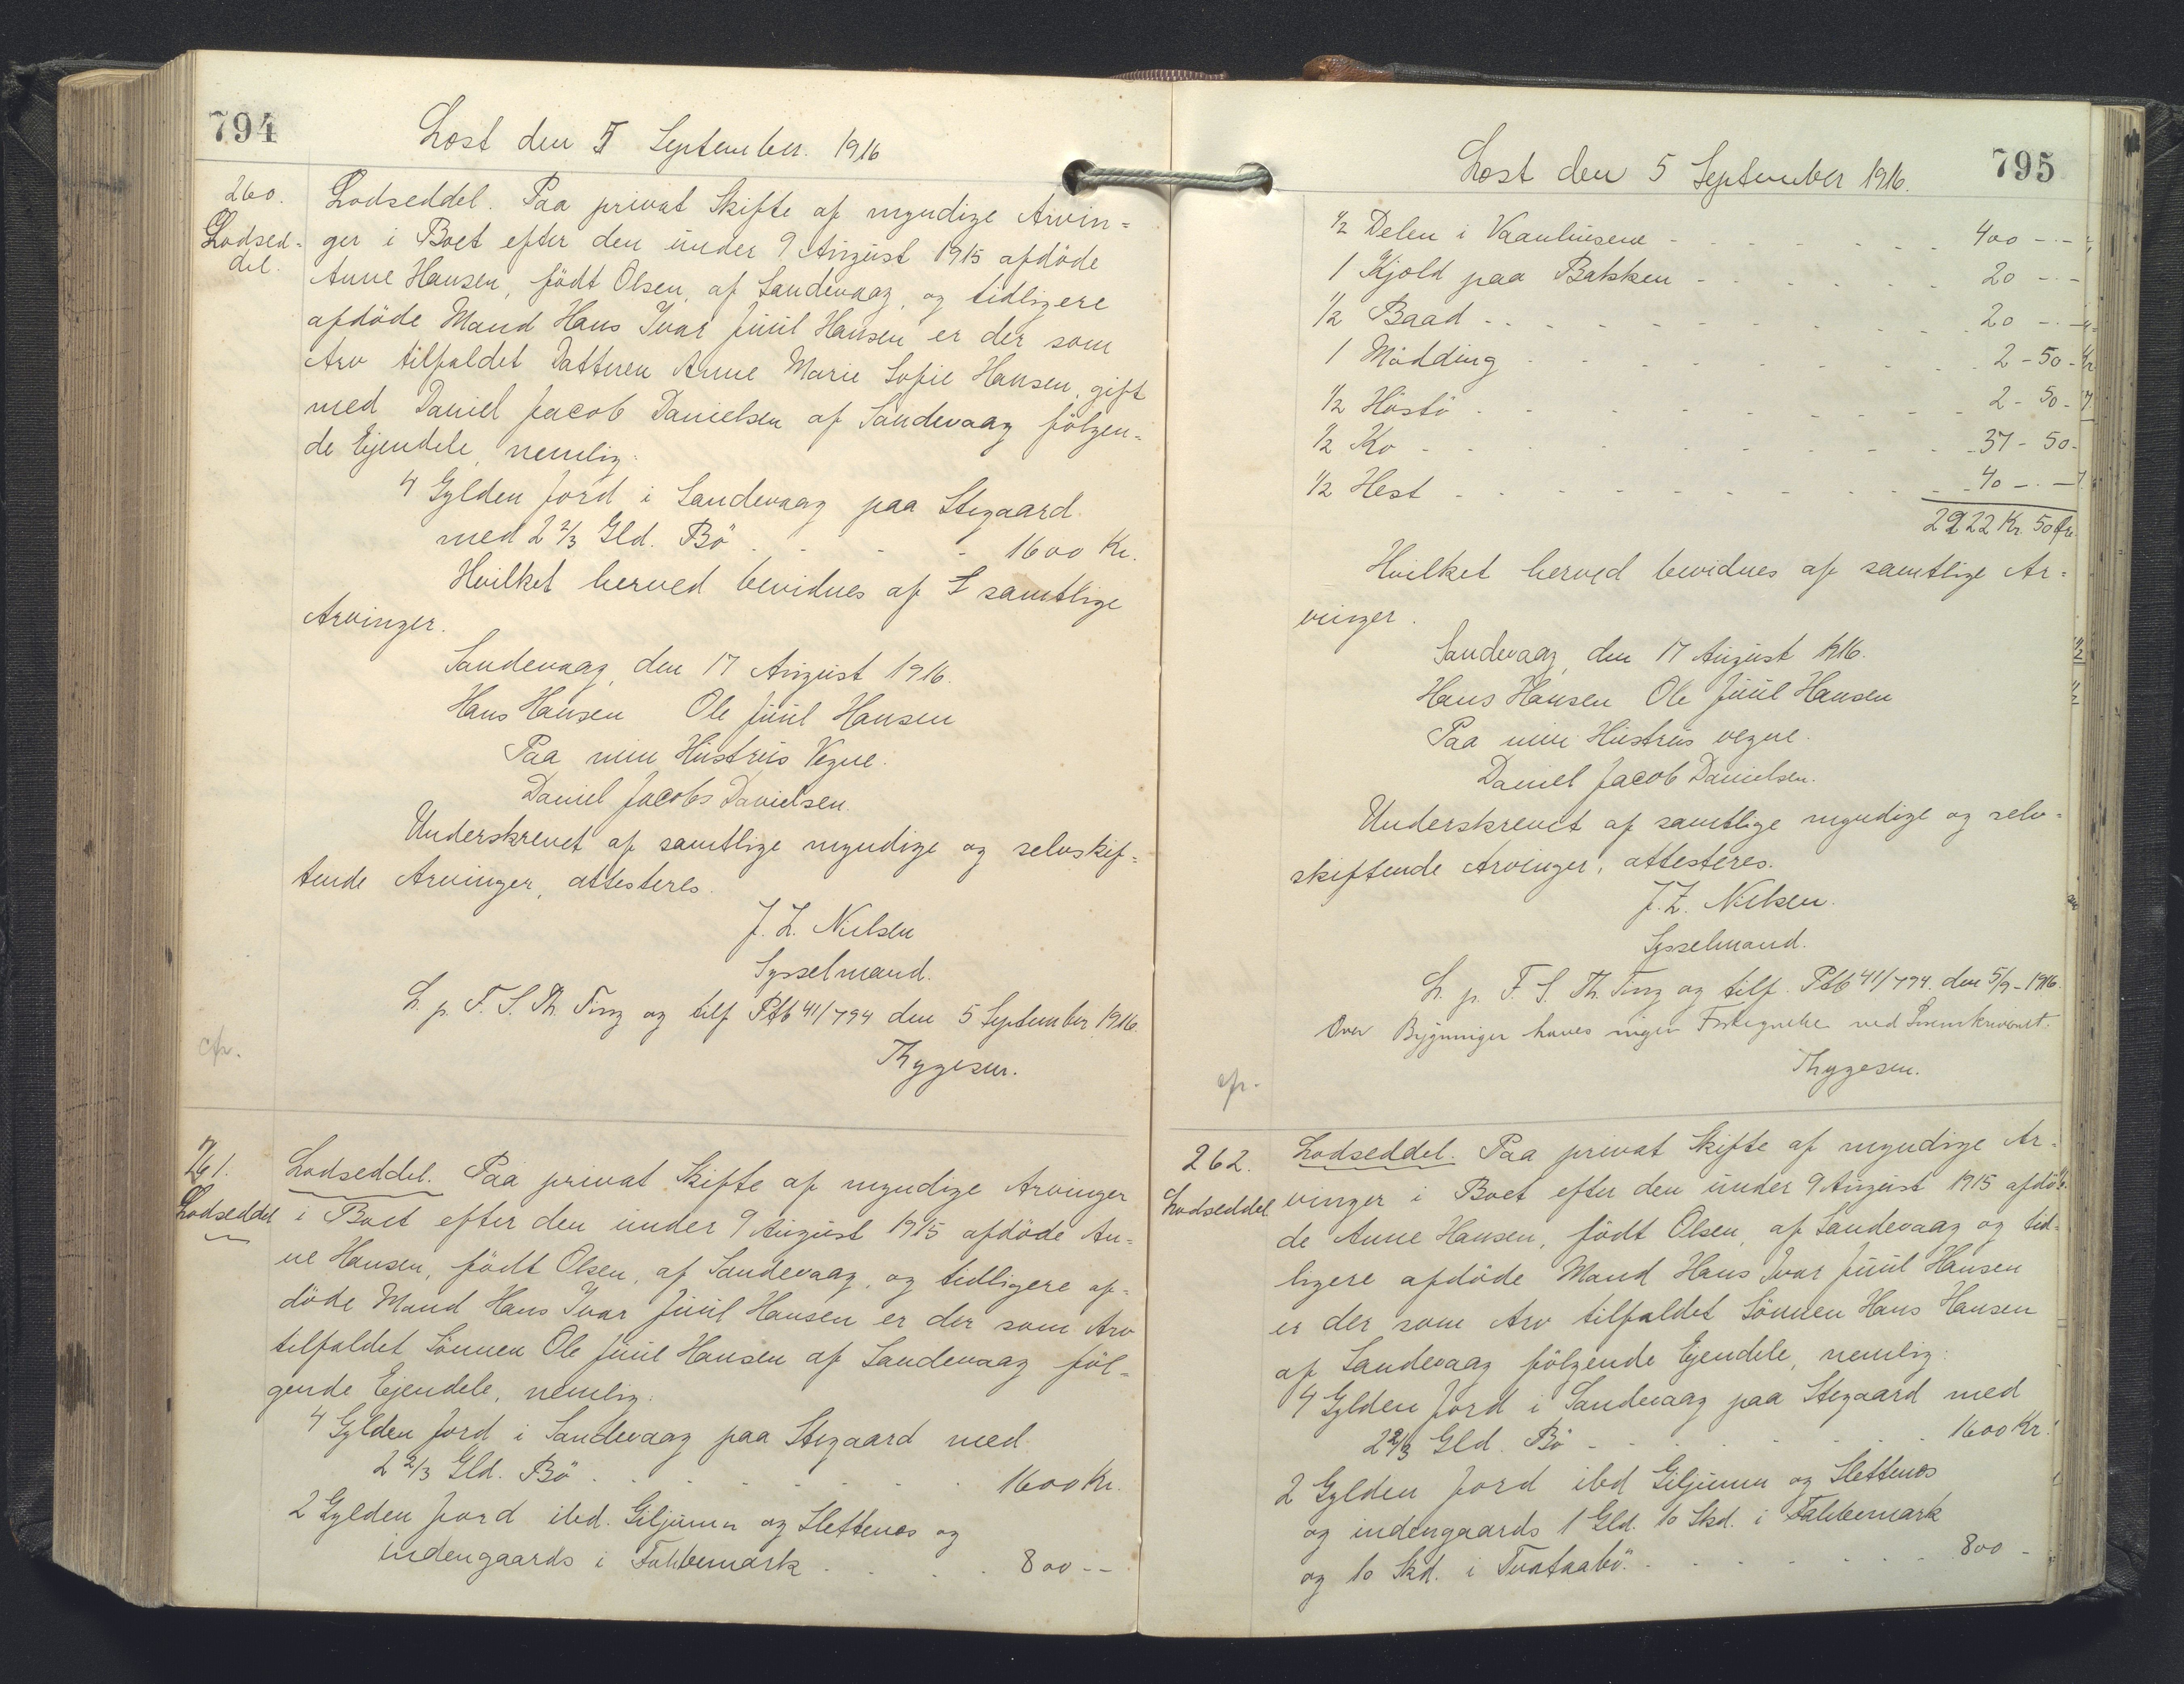 794
Læst den 5 September. 1916
260.
Lodsed-
del.
Lodseddel. Paa privat Skifte af myndige Arvin-
ger i Boet efter den under 9 August 1915 afdöde
Anne Hansen, födt Olsen, af Sandevaag, og tidligere
afdöde Mand Hans Ivar Juul Hansen er der som
Arv tilfaldet Datteren Anne Marie Sofie Hansen, gift
med Daniel Jacob Danielsen af Sandevaag fölgen-
de Ejendele, nemlig:
4 Gylden Jord i Sandevaag paa Stegaard
med 2 2/3 Gld. Bö . . . . 1600 Kr.
Hvilket herved bevidnes af S samtlige
Arvinger.
Sandevaag, den 17 August 1916.
Hans Hansen Ole Juul Hansen
Paa min Hustrus Vegne.
Daniel Jacobs Danielsen.
Underskrevet af samtlige myndige og selvskif-
tende Arvinger, attesteres.
J. Z. Nielsen
Sysselmand.
L. p. F. S. Th. Ting og tilf Ptb 41/794 den 5 September 1916.
Thygesen.
cfr.
261.
Lodseddel
Lodseddel. Paa privat Skifte af myndige Arvinger
i Boet efter den under 9 August 1915 afdöde An-
ne Hansen, födt Olsen, af Sandevaag, og tidligere af-
döde Mand Hans Ivar Juul Hansen er der som Arv
tilfaldet Sönnen Ole Juul Hansen af Sandevaag föl-
gende Ejendele, nemlig:
4 Gylden Jord i Sandevaag paa Stegaard med
2 2/3 Gld. Bö . . . . . . . 1600 Kr.
2 Gylden Jord ibd. Giljunu og Slettenes og
indengaards i Fahbemark . . . . 800 --
795
Læst den 5 September 1916.
1/2 Delen i Vaanhusene - - - - - - - 400 - - -
1 Kjold paa Bakken - - - - - - 20 - - -
1/2 Baad - - - - - - - - - 20 - - -
1 Mödding - - - - - - - - 2 - 50 -
1/2 Höstö - - - - - - - - - 2 - 50 -
1/2 Ko - - - - - - - - - 37 - 50 -
1/2 Hest - - - - - - - - - 40 - - -
2922 Kr. 50 Ør.
Hvilket herved bevidnes af samtlige Ar-
vinger.
Sandevaag, den 17 August 1916.
Hans Hansen Ole Juul Hansen
Paa min Hustrus vegne.
Daniel Jacob Danielsen.
Underskrevet af samtlige myndige og selv-
skiftende Arvinger, attesteres.
J. Z. Nielsen.
Sysselmand.
L. p. F. S. Th. Ting og tilf. Ptb 41/794. den 5/9-1916.
Over Bygninger haves ingen Fortegnelse ved
Thygesen.
cfr.
262.
Lodseddel
Lodseddel. Paa privat Skifte af myndige Ar-
vinger i Boet efter den under 9 August 1915 afdö-
de Anne Hansen, födt Olsen, af Sandevaag og tid-
ligere afdöde Mand Hans Ivar Juul Hansen
er der som Arv tilfaldet Sönnen Hans Hansen
af Sandevaag fölgende Ejendele, nemlig:
4 Gylden Jord i Sandevaag paa Stegaard med
2 2/3 Gld. Bö - - - - - - - 1600 Kr.
2 Gylden Jord ibd Giljunu og Slettenes
og indengaards 1 Gld. 10 Skd. i Fahbemark
og 10 Skd. i Tvataabö. - - - - - - 800 -